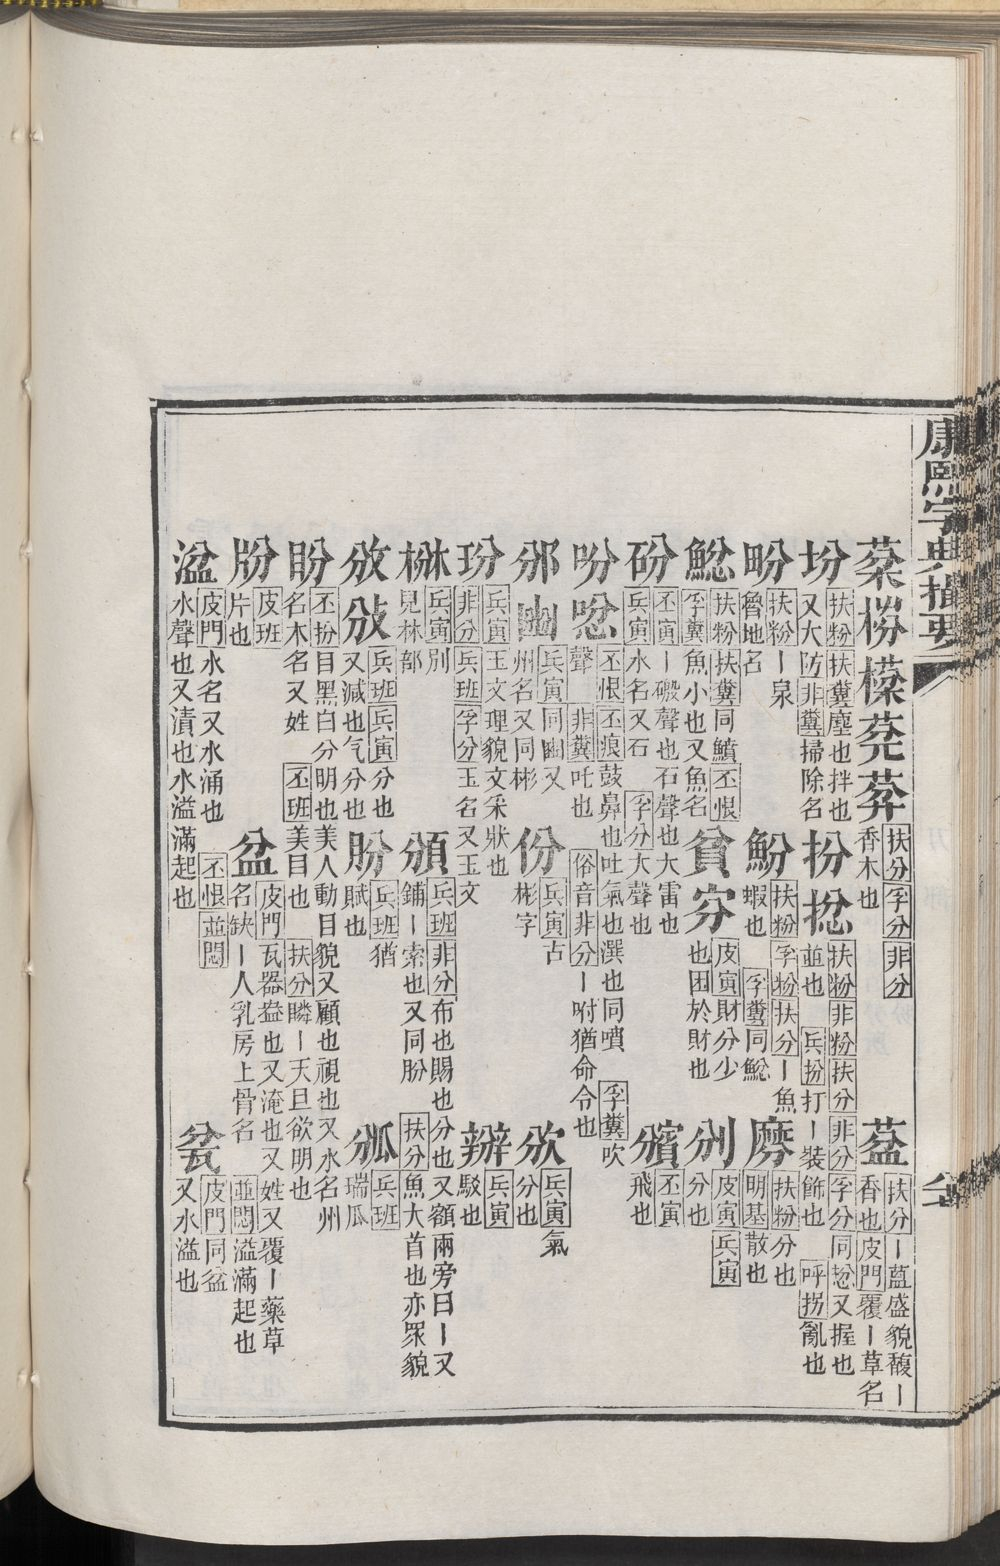 康熙字典撮要
棻梤橤蒶莽 扶分孚分非分香木也 葐 扶分丨蒀盛貌馥丨香也皮門覆丨草名
坋 扶粉扶糞塵也拌也又大防非糞掃除名 扮搃 扶粉非粉扶分非分孚分同搃又握也並也兵扮打丨裝飾也呼拐亂也
畚 扶粉丨泉魯地名 魵 扶粉孚粉扶分丨魚蝦也孚糞同鯰 黂 扶粉分也明基散也
鯰 扶粉扶糞同鱝丕恨孚糞魚小也又魚名 貧穷 皮寅財分少也困於財也 分 皮寅兵寅分也
砏 丕寅丨磤聲也石聲也大雷也兵寅水名又石孚分大聲也 丕寅飛也
吩 丕恨丕痕鼓鼻也吐氣也潠也同噴孚糞吹聲非糞吒也俗音非分丨咐猶命令也
邠豳 兵寅同豳又州名又同彬 份 兵寅古彬字 兵寅氣分也
玢 兵寅玉文理貌文采狀也非分兵班孚分玉名又玉文 辬 兵寅駁也
兵寅別見林部 頒 兵班非分布也賜也分也又額兩旁曰丨又鋪丨索也又同朌扶分魚大首也亦眾貌
攽 兵班兵寅分也又減也气分也 朌 兵班猶賦也 兵班瑞瓜
盼 丕扮目黑白分明也美人動目貌又顧也視也又水名州名木名又姓丕班美目也扶分瞵丨天旦欲明也
皮班片也 盆 皮門瓦器盎也又淹也又姓又覆丨藥草名缺丨人乳房上骨名並悶溢滿起也
湓 皮門水名又水涌也丕恨並悶水聲也又漬也水溢滿起也 瓫 皮門同盆又水溢也